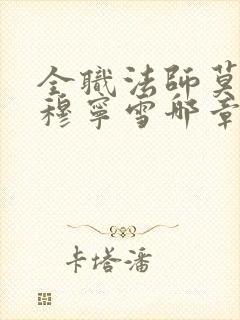 全職法師莫
穆寧雪哪章
卡塔潘